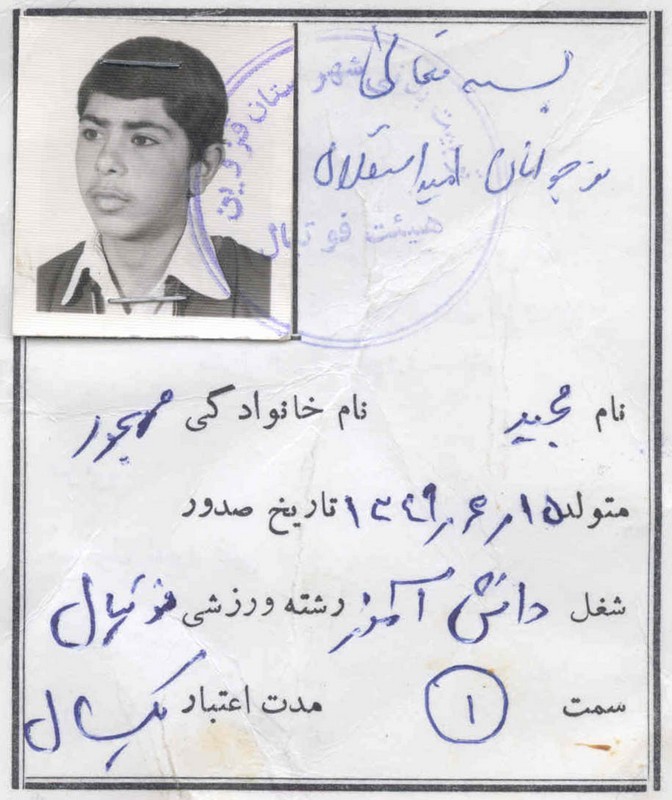 بسمه تعالی
نوجوانان امید استقلال
شهرستان قزوین
هیئت فوتبال
نام مجید نام خانوادگی مهجور
متولد ۱۵ر۶ر۱۳۴۹ تاریخ صدور
شغل دانش آموز رشته ورزشی فوتبال
سمت ۱ مدت اعتبار یکسال